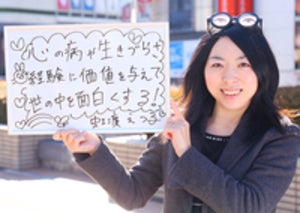 心の病や生きづらさ
経験に価値を与えて
世の中を面白くする!